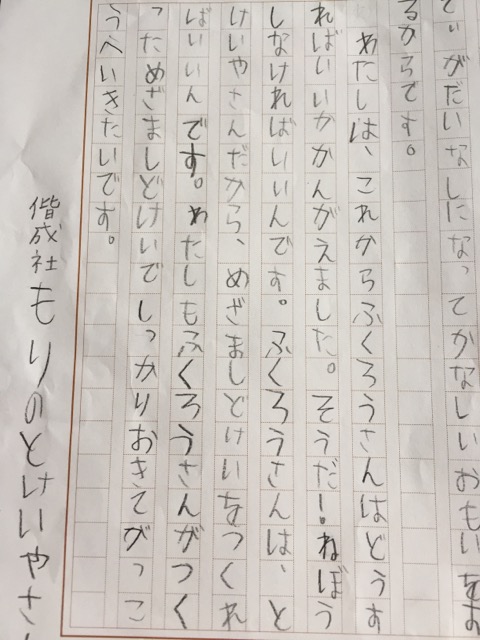 てぃがだいなしになってかなしいおもいをす
るからです。
わたしは、これからふくろうさんはどうす
ればいいかかんがえました。そうだ!ねぼう
しなければいいんです。ふくろうさんは、と
けいやさんだから、めざましどけいをつくれ
ばいいんです。わたしもふくろうさんがつく
っためざましどけいでしっかりおきてがっこ
うへいきたいです。
偕成社もりのとけいやさ